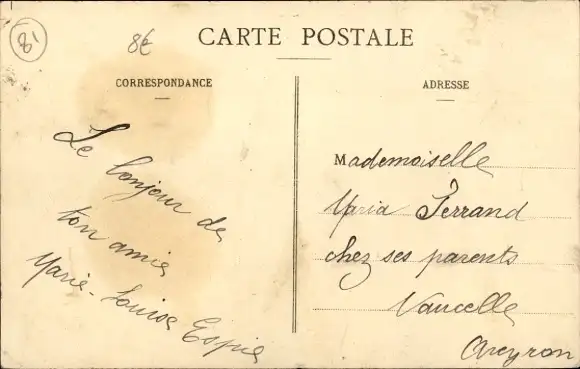 81
8€
CARTE POSTALE
CORRESPONDANCE
Le bonjour de
ton amie
Marie-Louise Espie
ADRESSE
Mademoiselle
Maria Ferrand
chez ses parents
Vaucelle
Aveyron